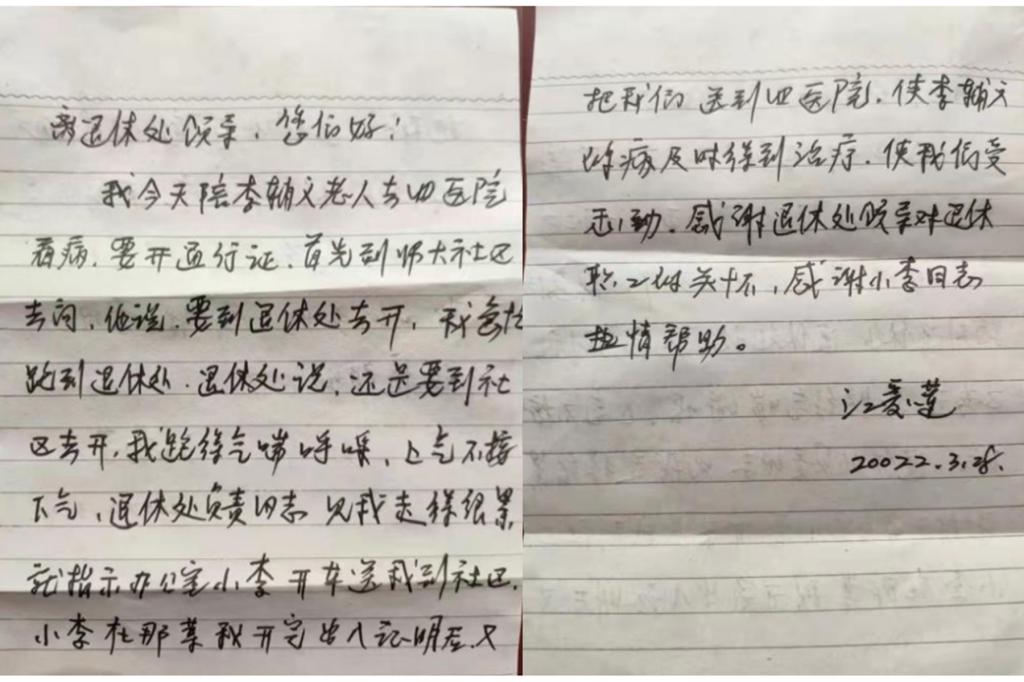 离退休处领导，您们好：
我今天陪李辅文老人去四医院
看病，要开通行证，首先到师大社区
去问，他说，要到退休处去开，我急忙
跑到退休处，退休处说，还是要到社
区去开，我跑得气喘呼呼，上气不接
下气，退休处负责同志见我走得很累
就指示办公室小李开车送我到社区，
小李在那等我开完出入证明后，又
把我们送到四医院，使李辅文
的病及时得到治疗，使我们受
感动，感谢退休处领导对退休
职工的关怀，感谢小李同志
热情帮助。
江爱莲
20022.3.28.